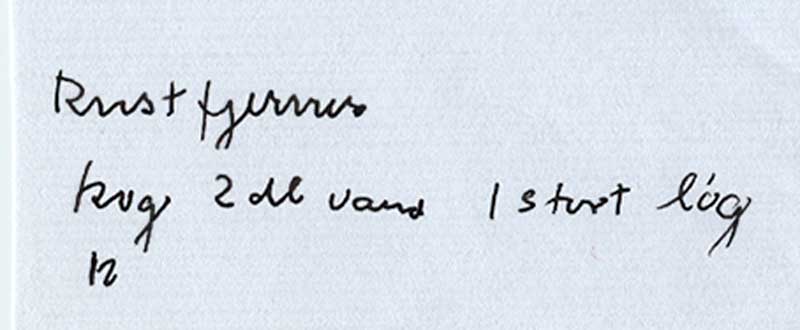 Rust fjernes
kog 2 dl vand 1 stort løg